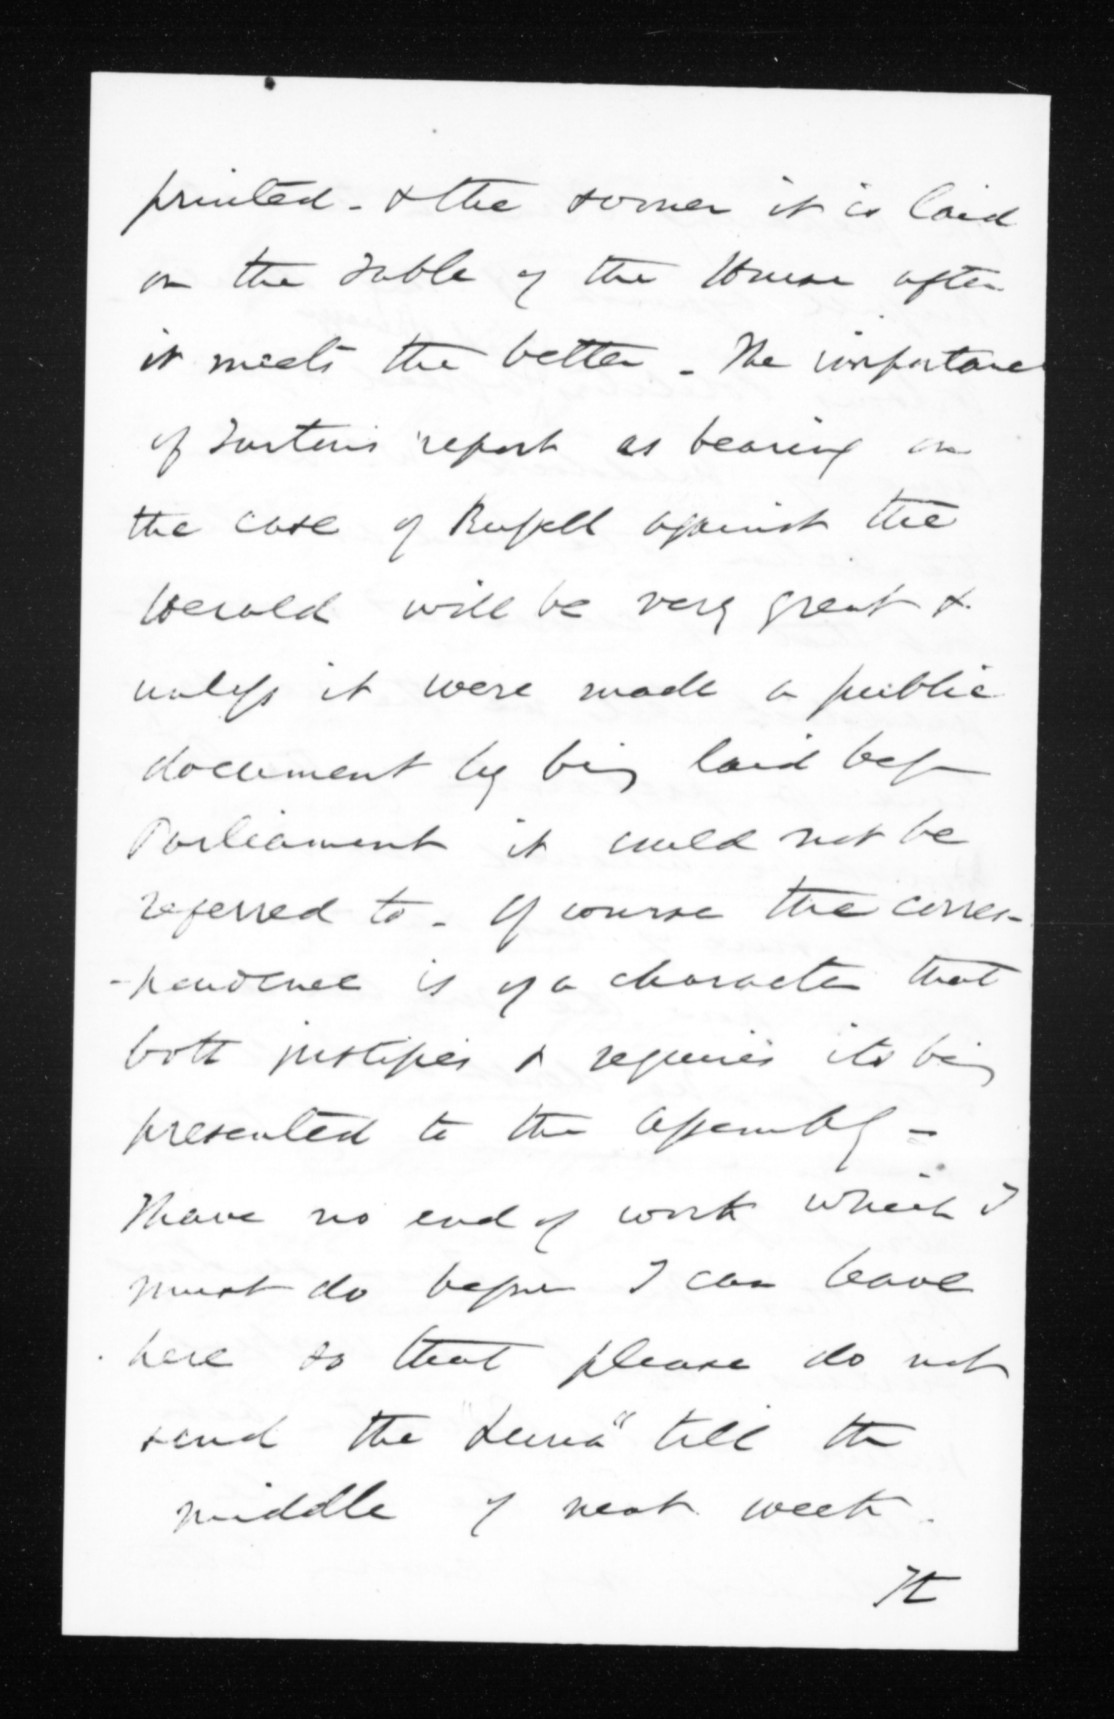 printed - & the sooner it is laid
on the Table of the House after
it meets the better - The importance
of Turton's report as bearing on
the case of Russell against the
Herald will be very great &
unless it were made a public
document by being laid before
Parliament it could not be
referred to - Of course the corres-
-pondence is of a character that
both justifies & requires its being
presented to the Assembly -
I have no end of work which I
must do before I can leave
here so that please do not
send the "Luna" till the
middle of next week.
It